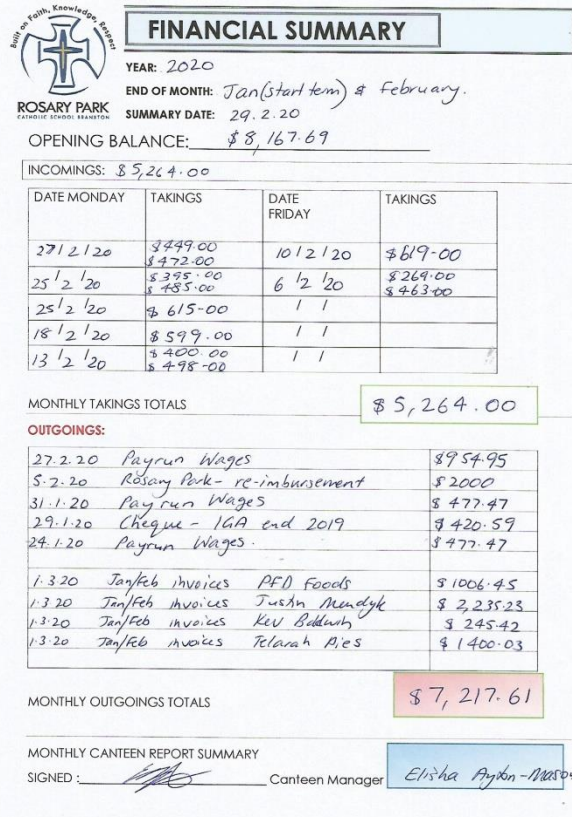 Built on Faith, Knowledge, Respect
FINANCIAL SUMMARY
YEAR: 2020
END OF MONTH: Jan (start term) & February.
ROSARY PARK
CATHOLIC SCHOOL BRANXTON
SUMMARY DATE: 29.2.20
OPENING BALANCE: $8,167.69
INCOMINGS: $5,264.00
DATE MONDAY TAKINGS DATE FRIDAY TAKINGS
27/2/20 $449.00 $472.00 10/2/20 $619-00
25/2/20 $395.00 $485.00 6/2/20 $269.00 $463.00
25/2/20 $615-00 / /
18/2/20 $599.00 / /
13/2/20 $400.00 $498-00 / /
MONTHLY TAKINGS TOTALS $5,264.00
OUTGOINGS:
27.2.20 Payrun Wages $954.95
5.2.20 Rosary Park- re-imbursement $2000
31.1.20 Payrun Wages $477.47
29.1.20 Cheque - IGA end 2019 $420.59
24.1.20 Payrun Wages. $477.47
1.3.20 Jan/Feb invoices PFD Foods $1006.45
1.3.20 Jan/Feb invoices Justin $2,235.23
1.3.20 Jan/Feb invoices Kev Baldwin $245.42
1.3.20 Jan/Feb invoices Telarah Pies $1400.03
MONTHLY OUTGOINGS TOTALS $7,217.61
MONTHLY CANTEEN REPORT SUMMARY
SIGNED: Canteen Manager Elisha